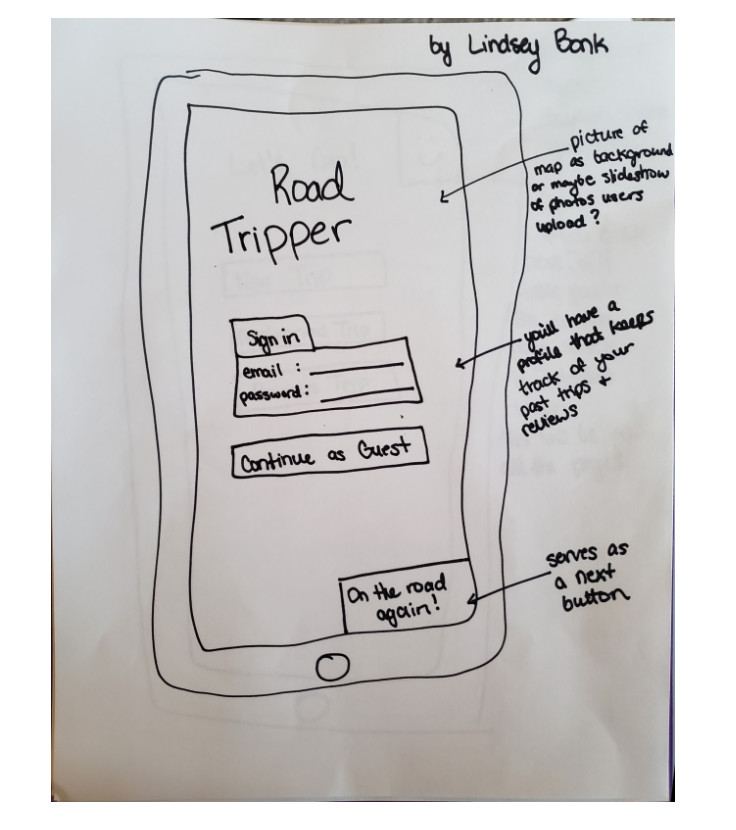 by Lindsey Bonk
Road
Tripper
picture of
map as background
or maybe slideshow
of photos users
upload?
Sign in
email :
password :
you'll have a
profile that keeps
track of your
past trips +
reviews
Continue as Guest
On the road
again!
serves as
a next
button